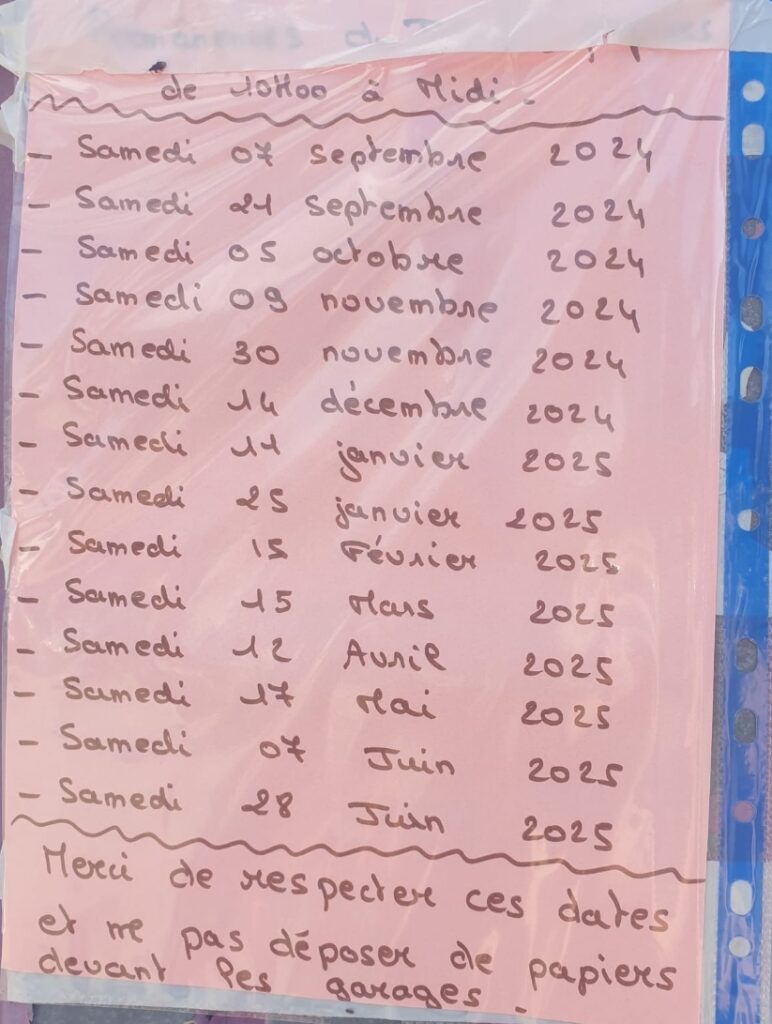 de 10H00 à Midi.
- Samedi 07 septembre 2024
- Samedi 21 septembre 2024
- Samedi 05 octobre 2024
- Samedi 09 novembre 2024
- Samedi 30 novembre 2024
- Samedi 14 décembre 2024
- Samedi 11 janvier 2025
- Samedi 25 janvier 2025
- Samedi 15 Février 2025
- Samedi 15 Mars 2025
- Samedi 12 Avril 2025
- Samedi 17 Mai 2025
- Samedi 07 Juin 2025
- Samedi 28 Juin 2025
Merci de respecter ces dates
et ne pas déposer de papiers
devant les garages.